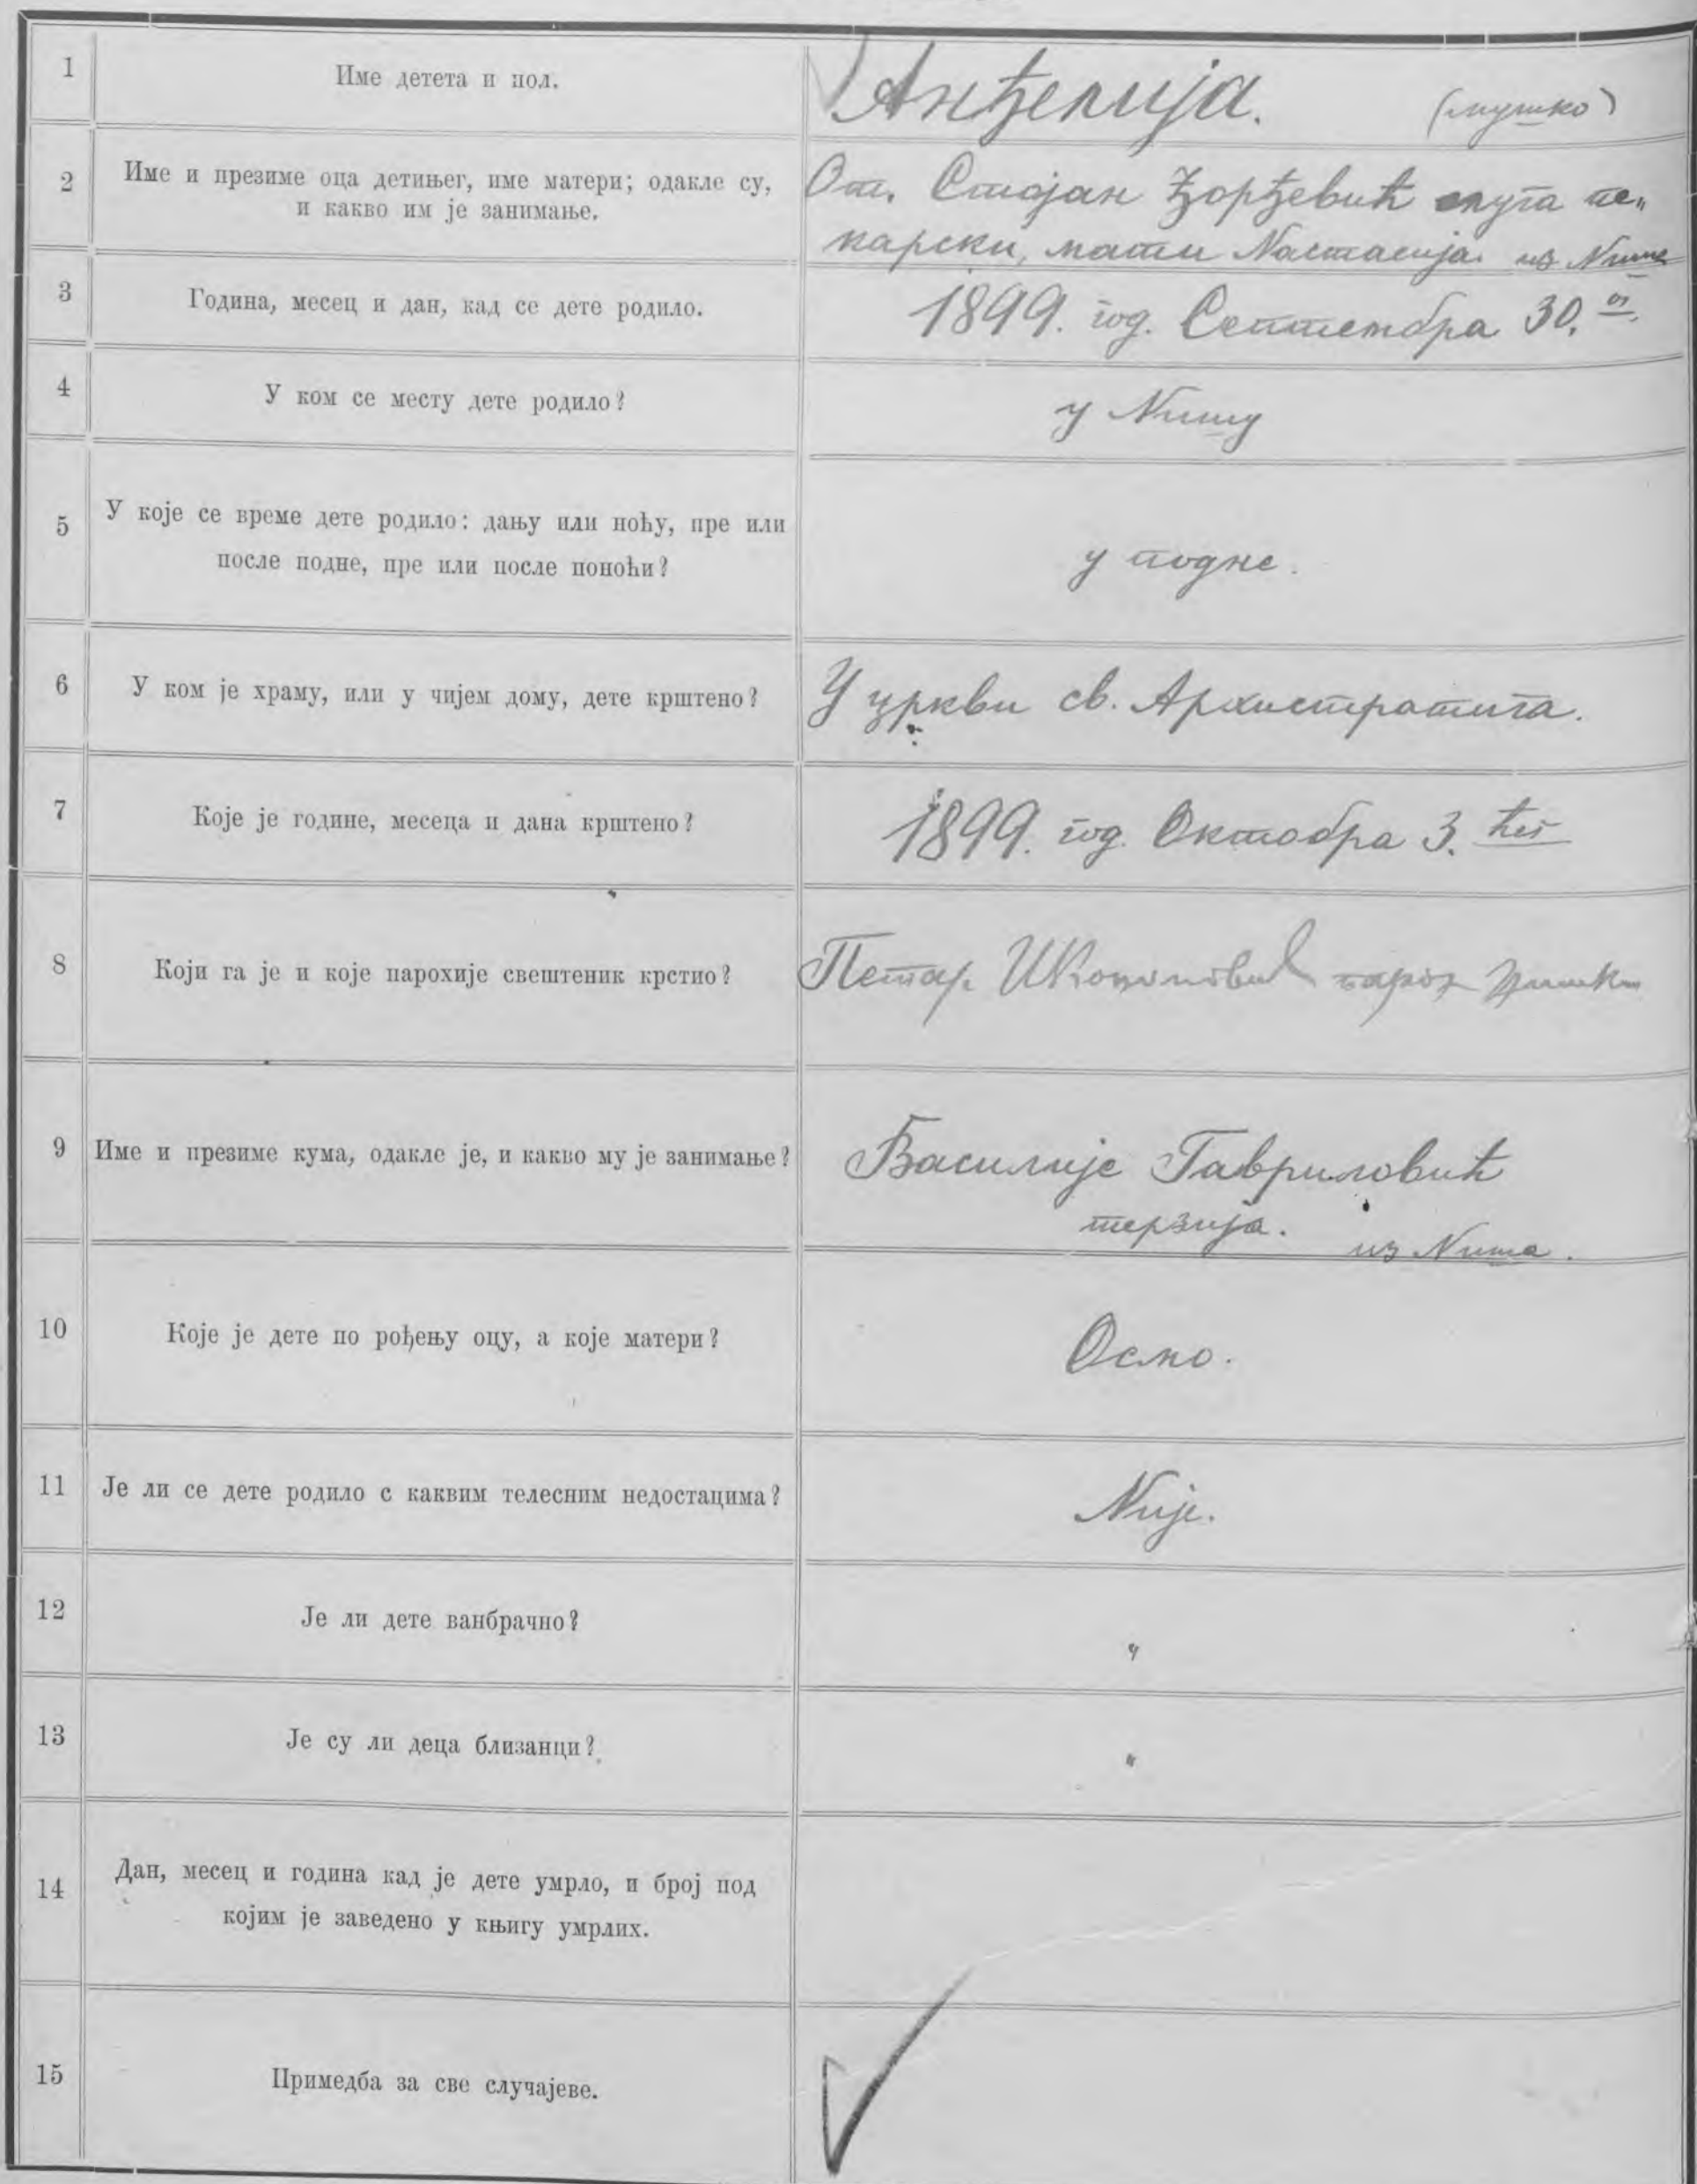 1
Име детета и пол.
Анђелија. (мушко)
2
Име и презиме оца детињег, име матери; одакле су,
и какво им је занимање.
От. Стојан Ђорђевић слуга пе„
карски, мати Настасија. из Ниша
3
Година, месец и дан, кад се дете родило.
1899. год. Септембра 30.ог.
4
У ком се месту дете родило?
у Нишу
5
У које се време дете родило: дању или ноћу, пре или
после подне, пре или после поноћи?
у подне.
6
У ком је храму, или у чијем дому, дете крштено?
У цркви св. Архистратига.
7
Које је године, месеца и дана крштено?
1899. год. Октобра 3. ћег
8
Који га је и које парохије свештеник крстио?
Петар парох
9
Име и презиме кума, одакле је, и какво му је занимање?
Василије Гавриловић
терзија. из Ниша.
10
Које је дете по рођењу оцу, а које матери?
Осмо.
11
Је ли се дете родило с каквим телесним недостацима?
Није.
12
Је ли дете ванбрачно?
"
13
Је су ли деца близанци?
"
14
Дан, месец и година кад је дете умрло, и број под
којим је заведено у књигу умрлих.
15
Примедба за све случајеве.